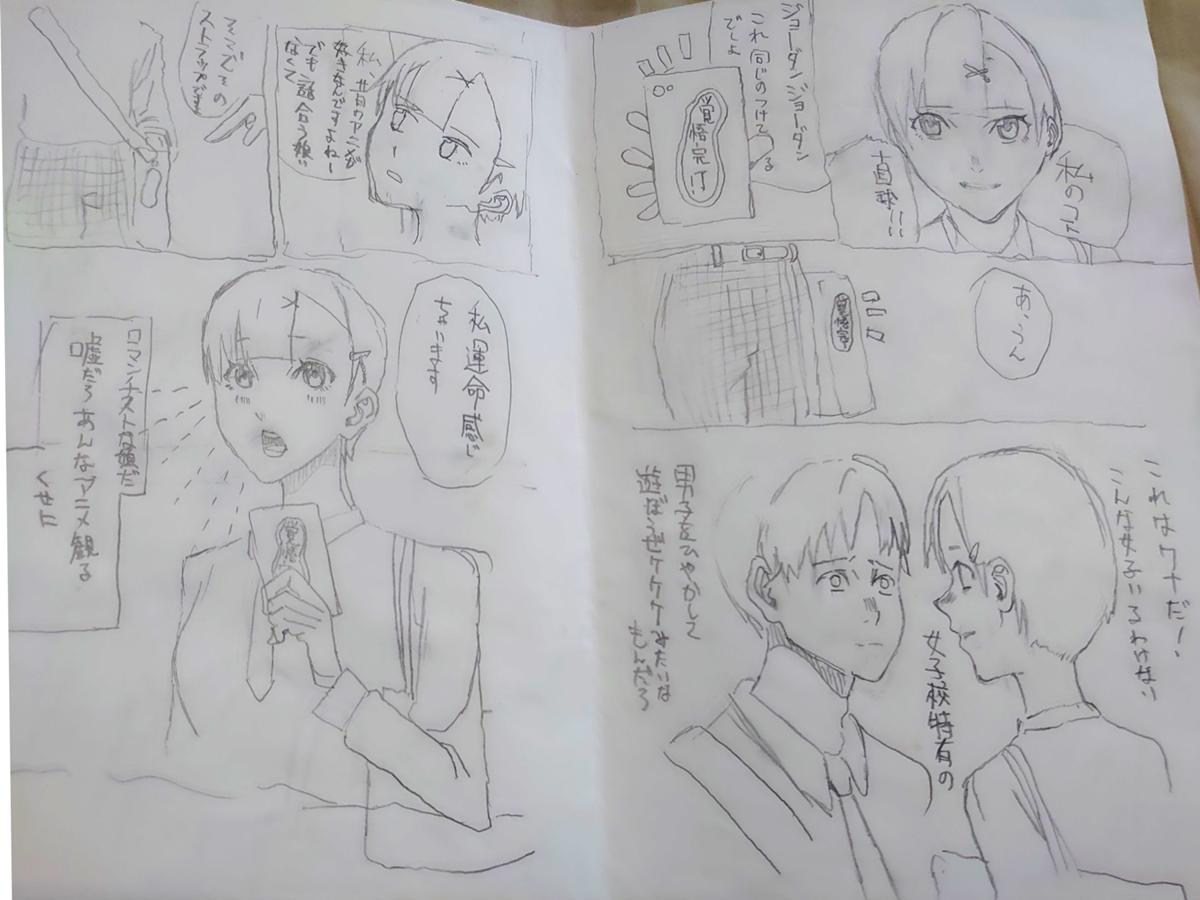 私のコト
直球!!
ジョーダンジョーダン
これ同じのつけてる
でしょ
覚悟完了
あ、うん
覚悟完了
これはワナだ!
こんな女子いるわけない
女子校特有の
男子をひやかして
遊ぼうぜケケケみたいな
もんだろ
私、昔のアニメが
好きなんですよねー
でも話合う娘い
なくて
ストラップです
私運命感じ
ちゃいます
覚悟
ロマンチストな娘だ
嘘だろあんなアニメ観る
くせに